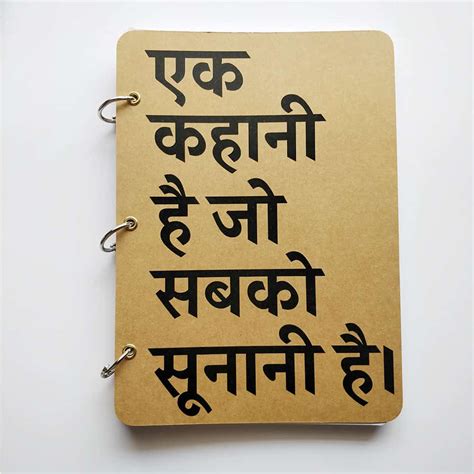 एक
कहानी
है जो
सबको
सूनानी है।